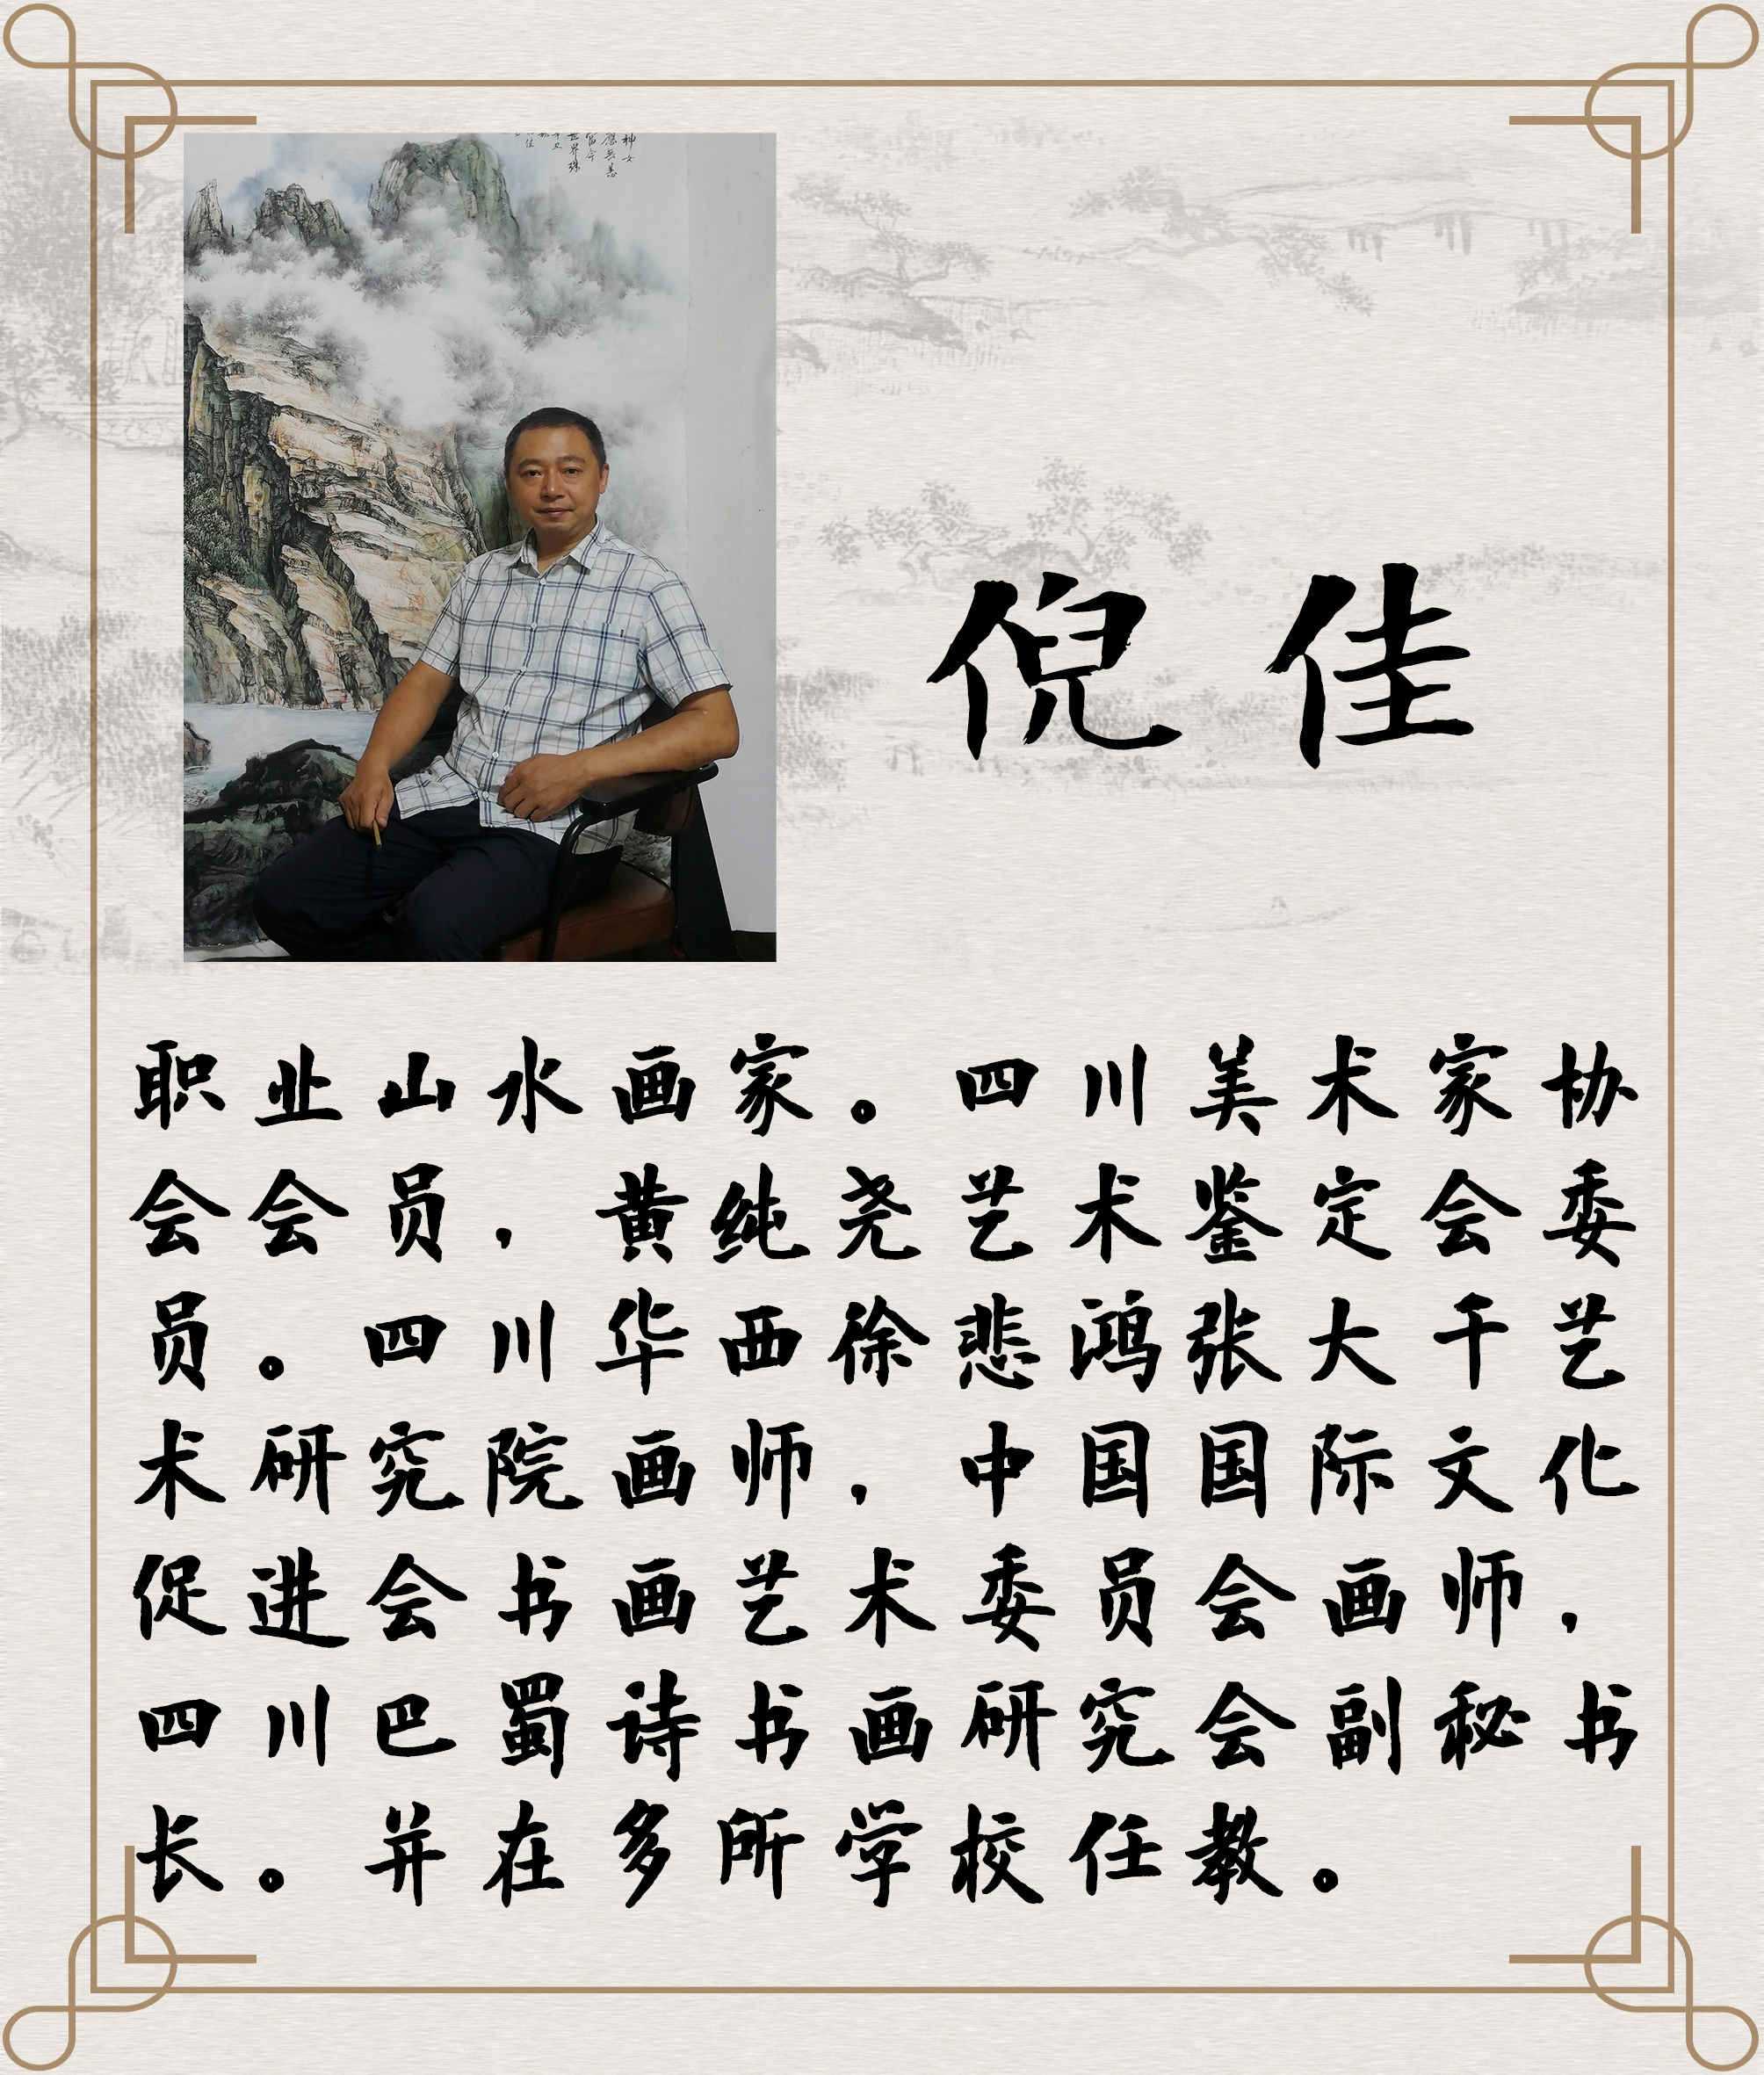 倪佳
职业山水画家。四川美术家协
会会员，黄纯尧艺术鉴定会委
员。四川华西徐悲鸿张大千艺
术研究院画师，中国国际文化
促进会书画艺术委员会画师，
四川巴蜀诗书画研究会副秘书
长。并在多所学校任教。